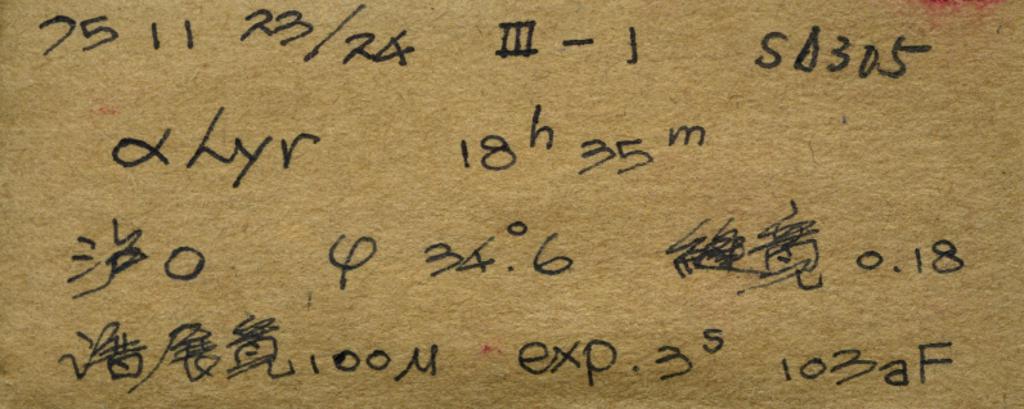 75 11 23/24 III-1 SA305
α Lyr 18ʰ 35ᵐ
沪0 φ 34°.6 縫寬 0.18
谱展寬100μ exp. 3ˢ 103aF